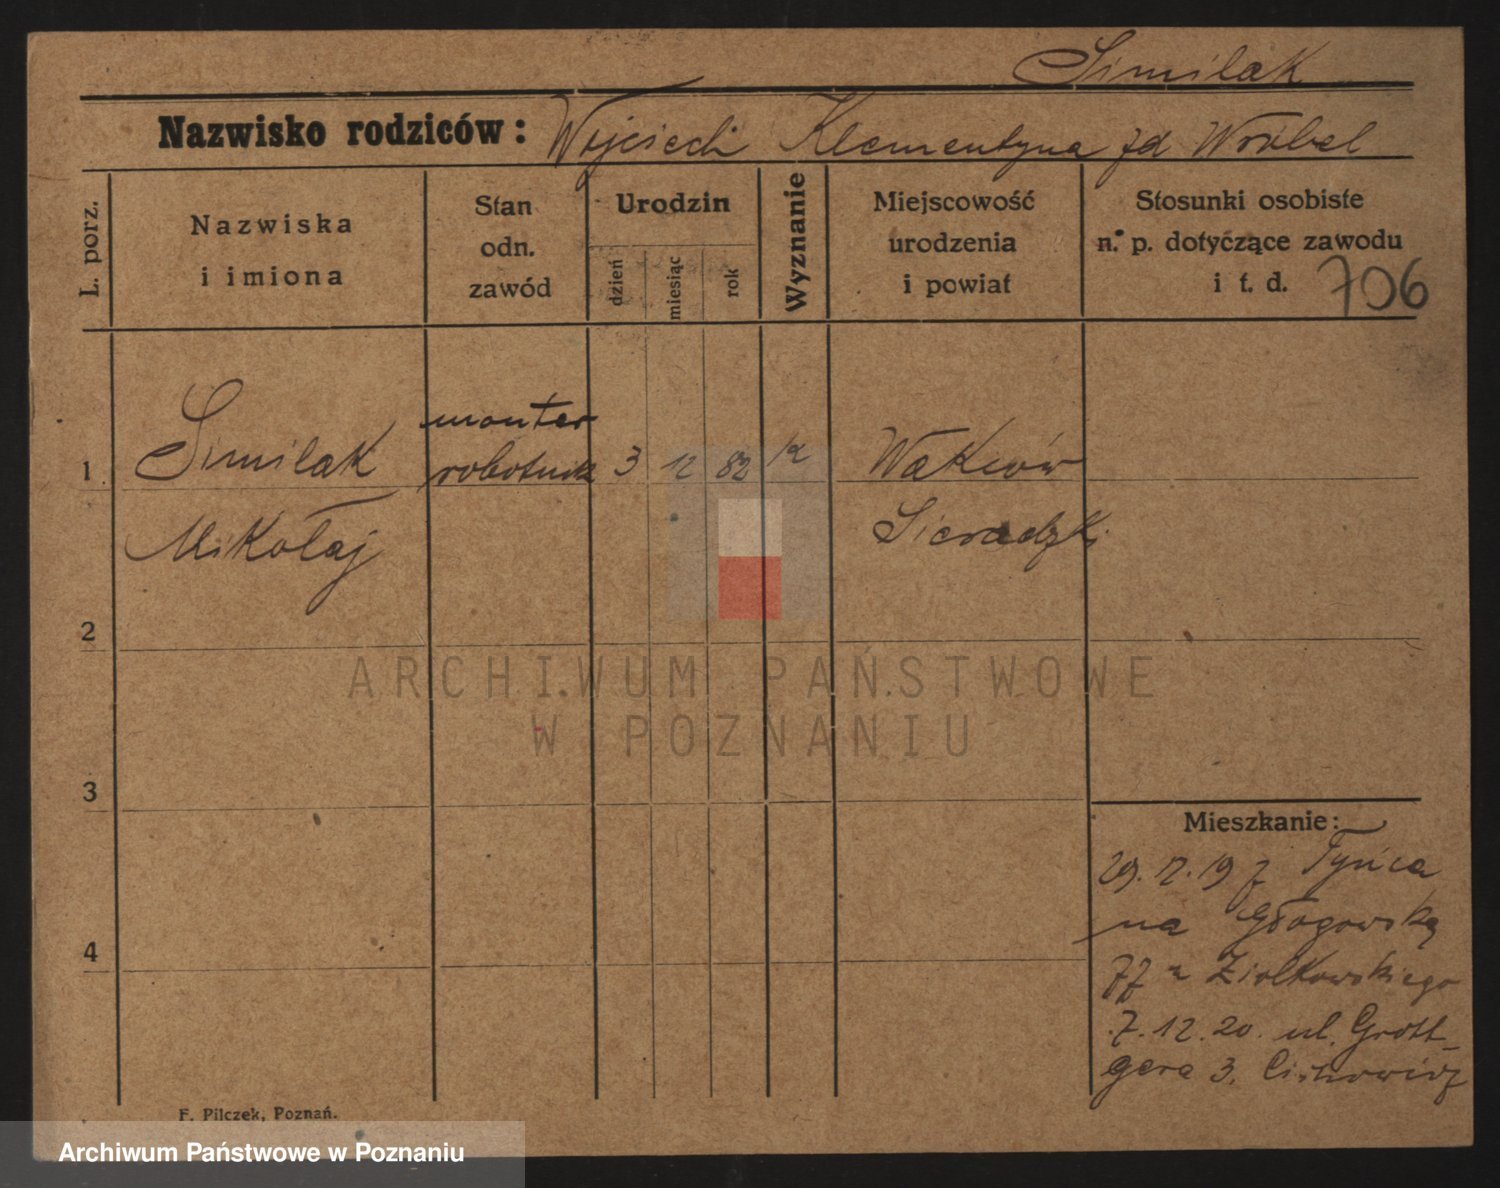 Similak
Nazwisko rodziców: Wojciech Klementyna zd Wróbel
L. porz.
Nazwiska
i imiona
Stan
odn.
zawód
Urodzin
dzień
miesiąc
rok
Wyznanie
Miejscowość
urodzenia
i powiat
Stosunki osobiste
n. p. dotyczące zawodu
i t. d. 706
monter
1 Similak robotnik 3 12 82
Mikołaj Sieradzki
2
3
4
Mieszkanie:
z Tyńca
na Głogowską
Ziolkowskiego
7.12.20. ul. Grott-
gera 3.
F. Pilczek, Poznań.
ARCHIWUM PAŃSTWOWE
W POZNANIU
Archiwum Państwowe w Poznaniu